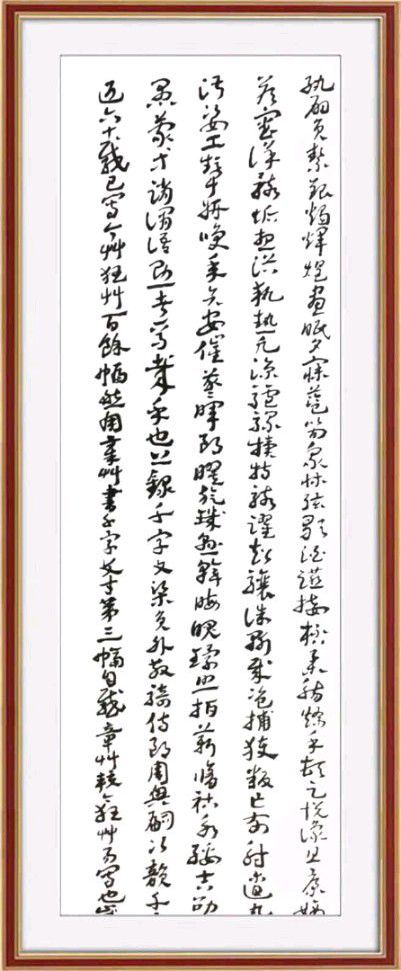 紈扇員絜銀燭煒煌晝眠夕寐藍筍象床弦歌酒讌接杯舉觴矯手頓足悅豫且康嫡
答審詳骸垢想浴執熱願涼驢騾犢特駭躍超驤誅斬賊盜捕獲叛亡布射遼丸
淑姿工顰妍笑年矢每催曦暉朗曜璇璣懸斡晦魄環照指薪修祜永綏吉劭
愚蒙等誚謂語助者焉哉乎也上錄千字文梁員外散騎侍郎周興嗣次韻千
近六十載已寫今艸狂艸百餘幅然用章艸書千字文才第三幅自感章艸較今狂艸易寫也此